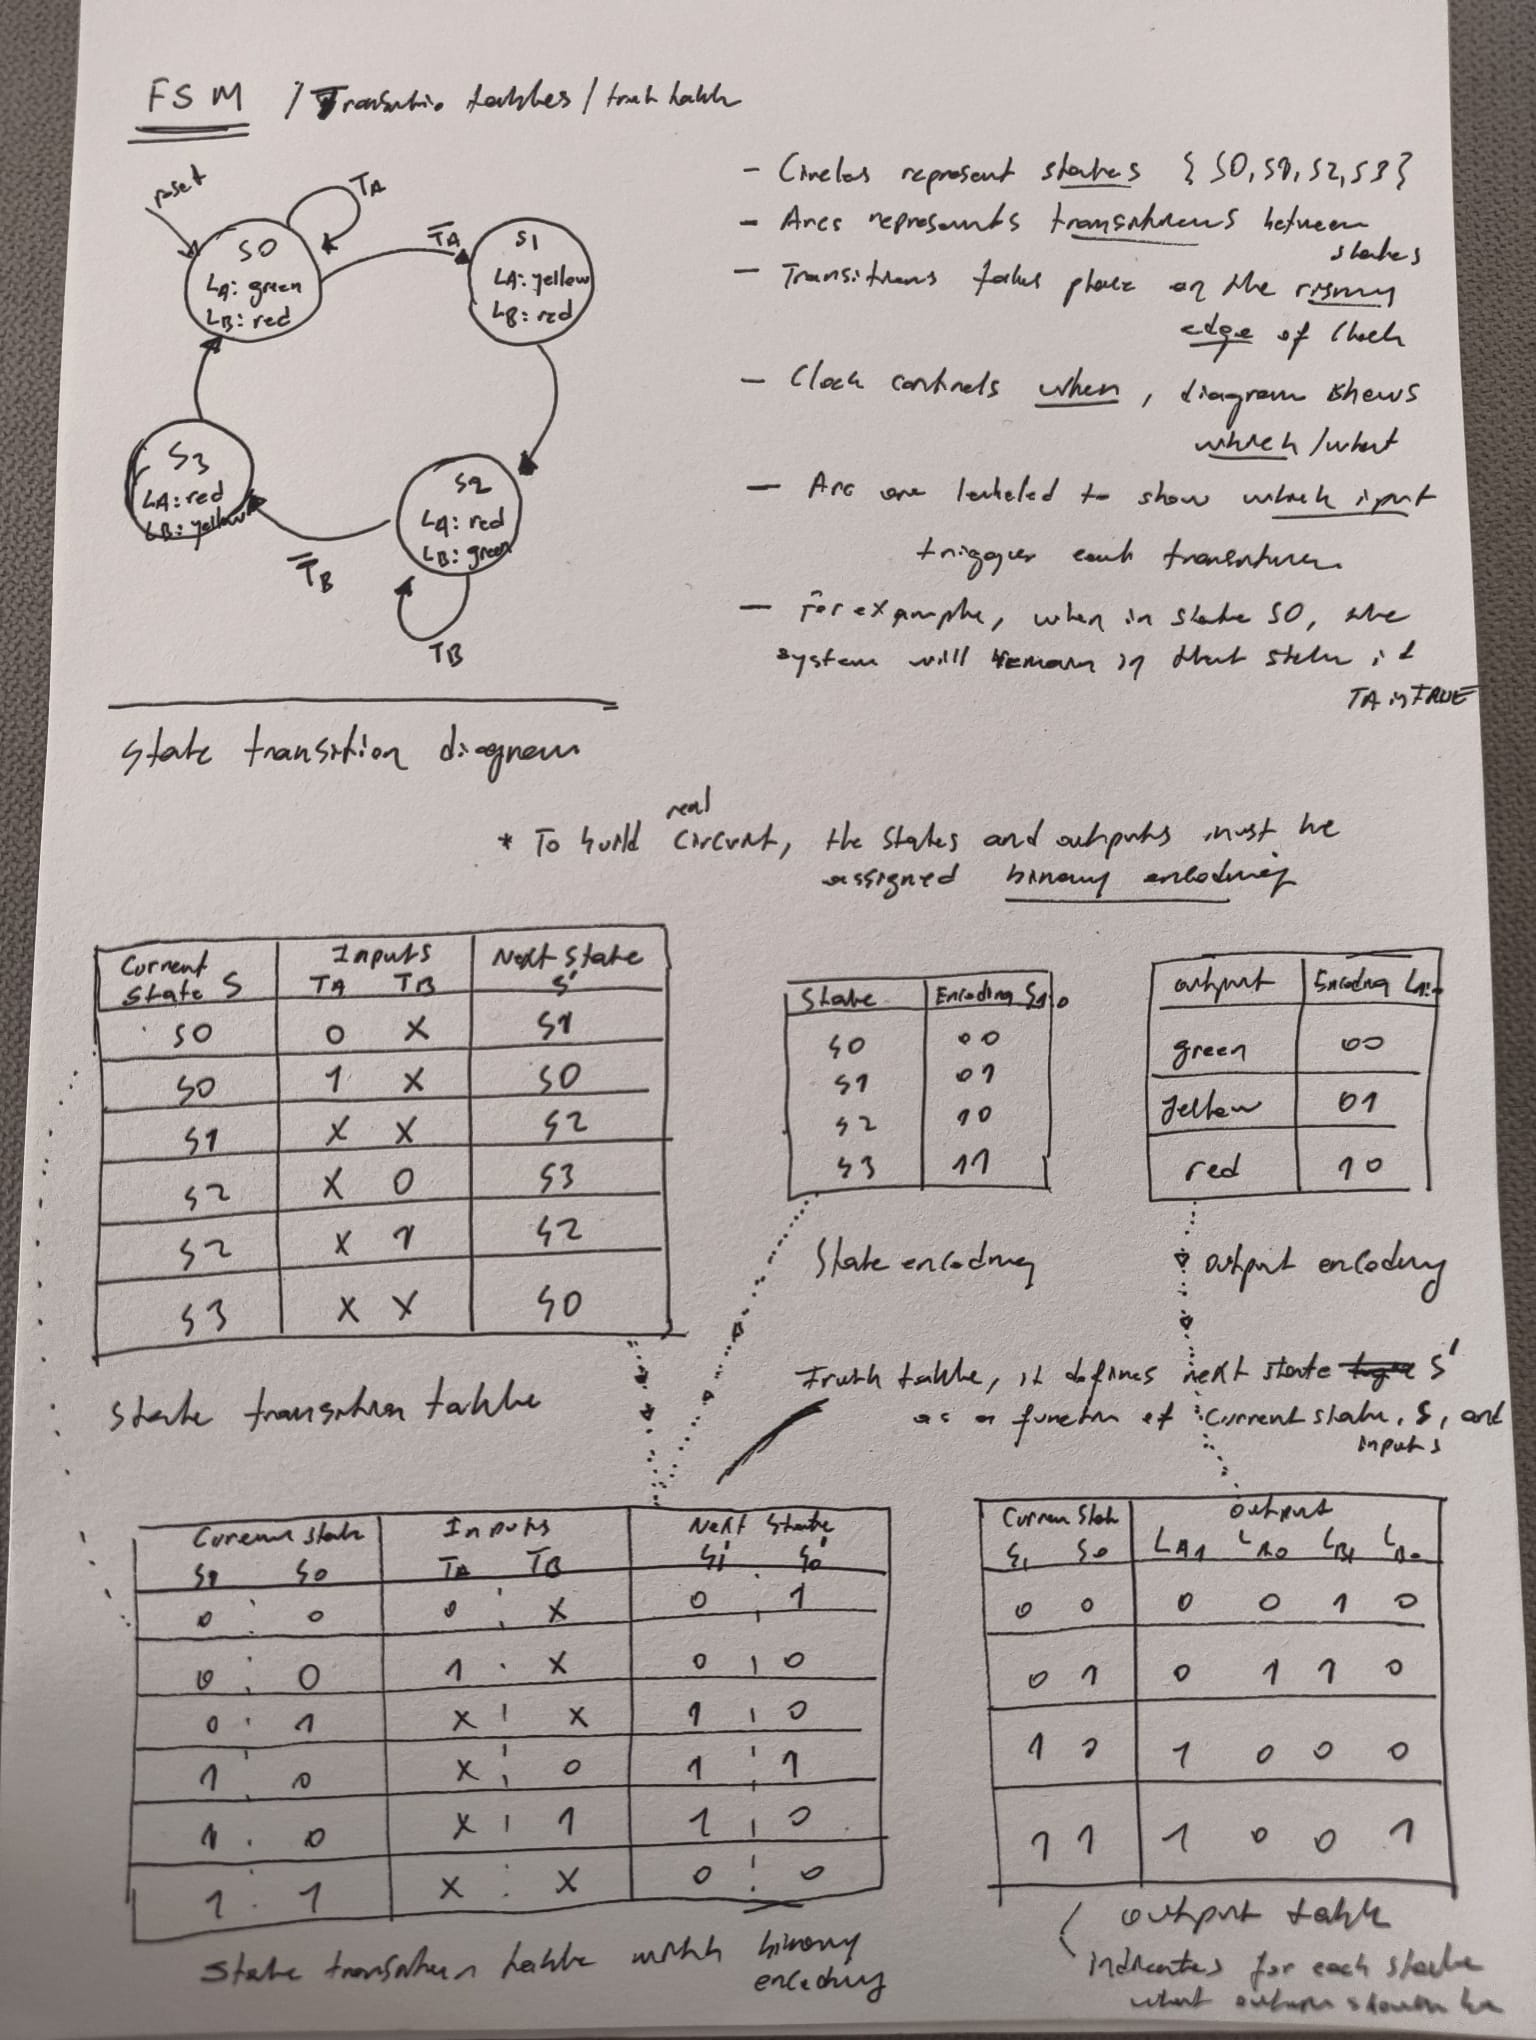 FSM / Transitio tables / truth table
reset
TA
S0
LA: green
LB: red
TA
S1
LA: yellow
LB: red
S3
LA: red
LB: yellow
S2
LA: red
LB: green
TB
TB
State transition diagram
- Circles represent states { S0, S1, S2, S3 }
- Arcs represents transitions between
states
- Transitions takes place on the rising
edge of clock
- Clock controls when, diagram shows
which / what
- Arc are labeled to show which input
trigger each transition
- For example, when in state S0, the
system will remain in that state if
TA is TRUE
real
* To build circuit, the states and outputs must be
assigned binary encoding
Current State S Inputs TA TB Next State S'
S0 0 X S1
S0 1 X S0
S1 X X S2
S2 X 0 S3
S2 X 1 S2
S3 X X S0
State transition table
State Encoding S1:0
S0 00
S1 01
S2 10
S3 11
State encoding
output Encoding L1:0
green 00
yellow 01
red 10
output encoding
Truth table, it defines next state S'
as a function of current state, S, and
inputs
Current state Inputs Next State
S1 S0 TA TB S1' S0'
0 0 0 X 0 1
0 0 1 X 0 0
0 1 X X 1 0
1 0 X 0 1 1
1 0 X 1 1 0
1 1 X X 0 0
State transition table with binary
encoding
Current State output
S1 S0 LA1 LA0 LB1 LB0
0 0 0 0 1 0
0 1 0 1 1 0
1 0 1 0 0 0
1 1 1 0 0 1
output table
indicates for each state
what output should be